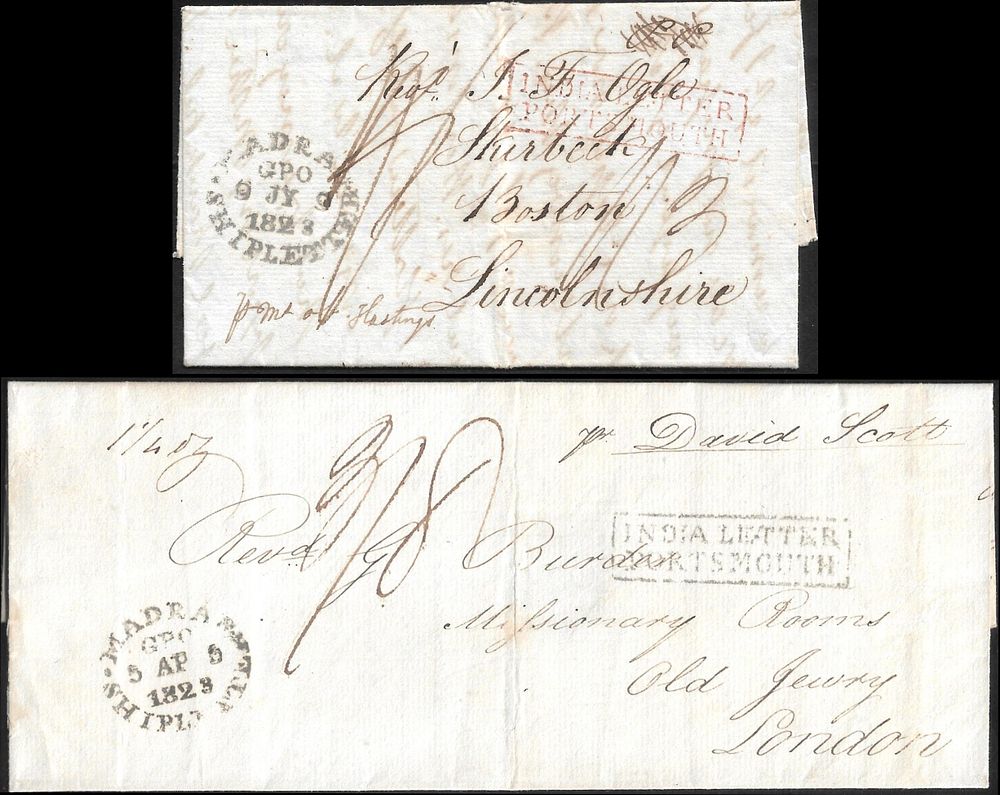 Revd. J. F. Ogle
INDIA LETTER
PORTSMOUTH
Skirbeck
Boston
Lincolnshire
MADRAS
GPO
9 JY 9
1823
SHIPLETTER
pr Ms of Hastings
1 1/4 oz
pr David Scott
3/8
Revd. G Burder
INDIA LETTER
PORTSMOUTH
Missionary Rooms
Old Jewry
London
MADRAS
GPO
5 AP 5
1823
SHIPLETTER